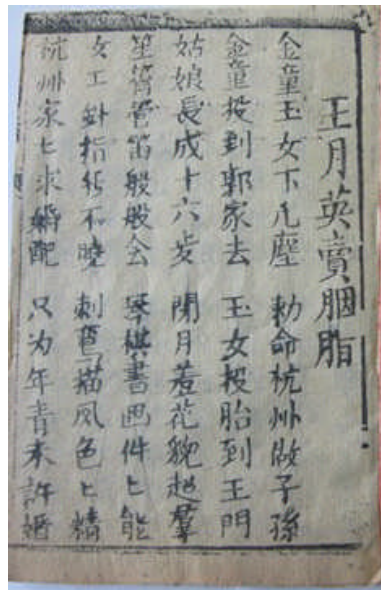 王月英賣胭脂
金童玉女下凡塵 勅命杭州做子孫
金童投到郭家去 玉女投胎到王門
姑娘長成十六岁 閉月羞花貌超羣
笙簫管笛般般会 琴棋書画件匕能
女工針指不曉 刺描凤色匕精
杭州家匕求婚配 只为年青未許婚